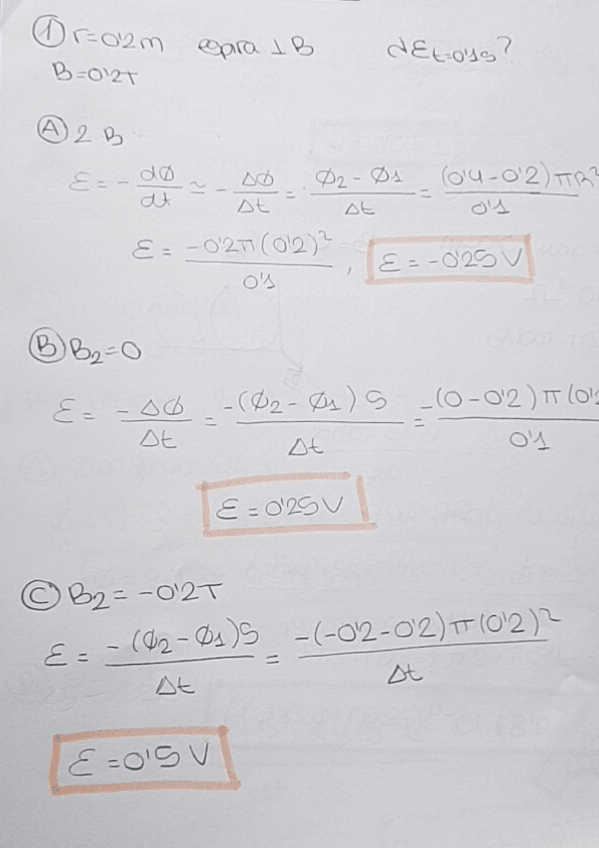 ① r=0'2m espira ⊥ B d ε t=0'1s?
B=0'2T
Ⓐ 2B
ε = - dϕ/dt ≃ - Δϕ/Δt = ϕ2 - ϕ1/Δt = (0'4-0'2)πR²/0'1
ε = -0'2π(0'2)²/0'1, ε = -0'25 V
Ⓑ B2=0
ε = -Δϕ/Δt = -(ϕ2 - ϕ1) S/Δt = -(0-0'2)π(0'2/0'1
ε = 0'25 V
Ⓒ B2 = -0'2T
ε = -(ϕ2-ϕ1)S/Δt = -(-0'2-0'2)π(0'2)²/Δt
ε = 0'5 V